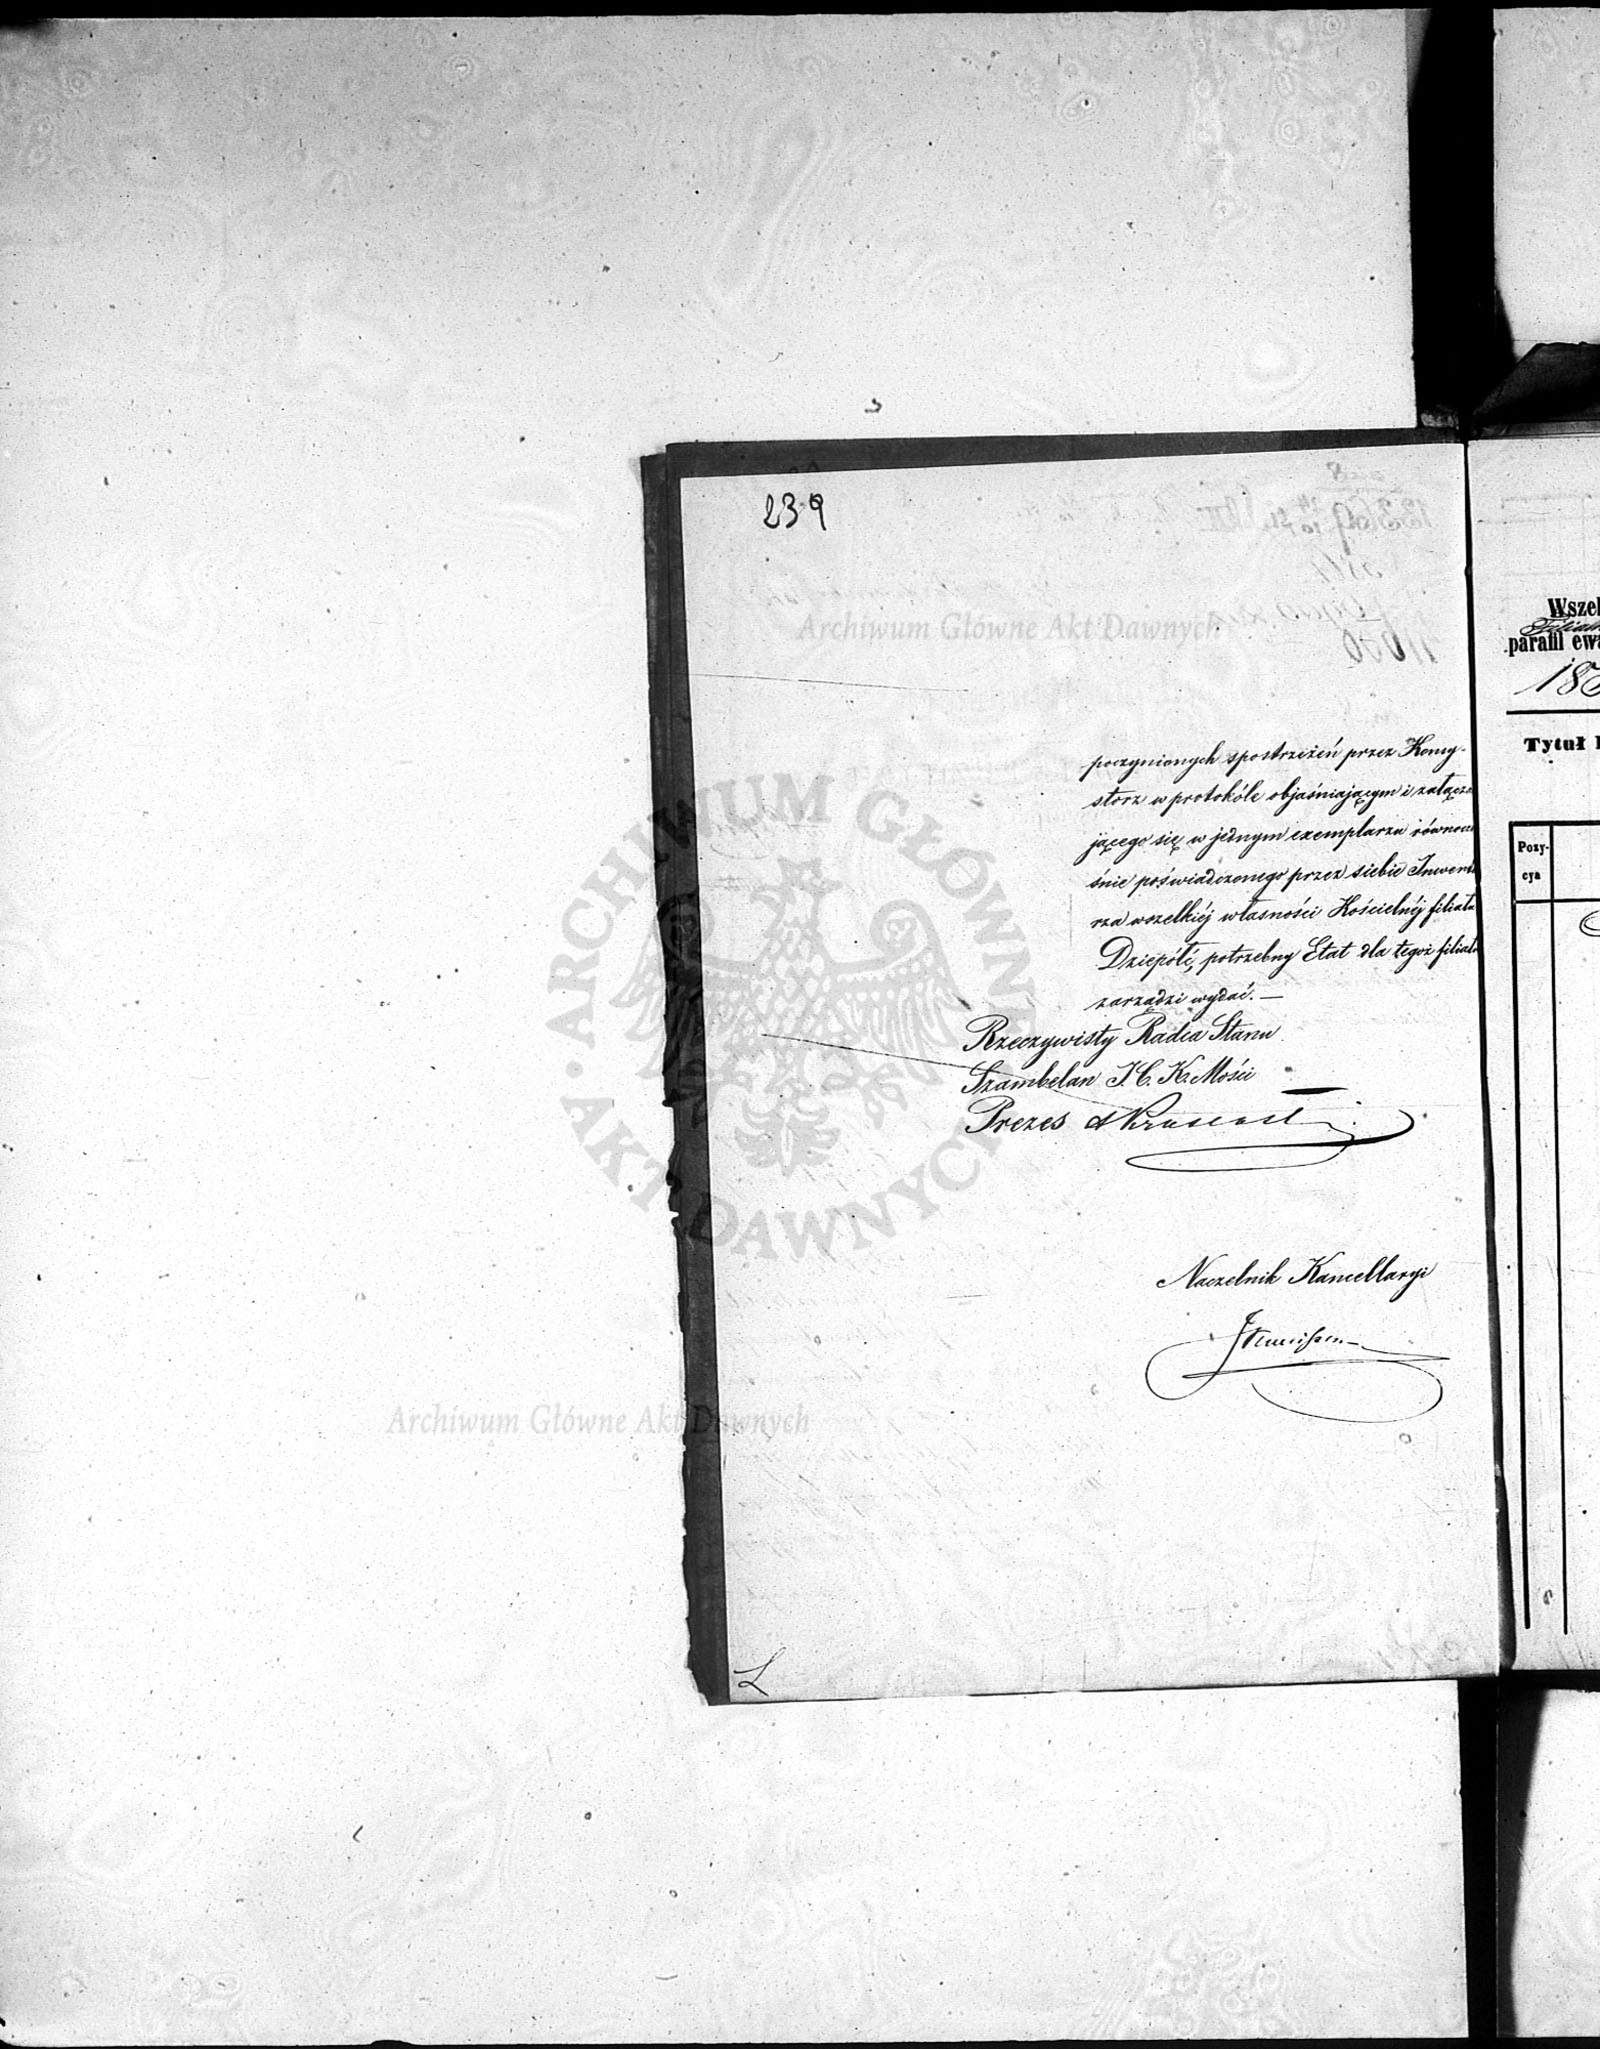 239
Archiwum Główne Akt Dawnych
poczynionych spostrzeżeń przez Konsy-
storz w protokóle objaśniającym i załącza
jącego się w jednym exemplarzu równocze
śnie poświadczonego przez siebie Inwenta
rza wszelkiéj własności Kościelnéj filiału
Dziepółć, potrzebny Etat dla tegoż filiału
zarządzi wydać. —
Rzeczywisty Radca Stanu
Szambelan J. C. K. Mości
Prezes
Naczelnik Kancellaryi
ARCHIWUM GŁÓWNE · AKT DAWNYCH ·
Archiwum Główne Akt Dawnych
L
Wszel
parafii ewa
Tytuł
Pozy-
cya